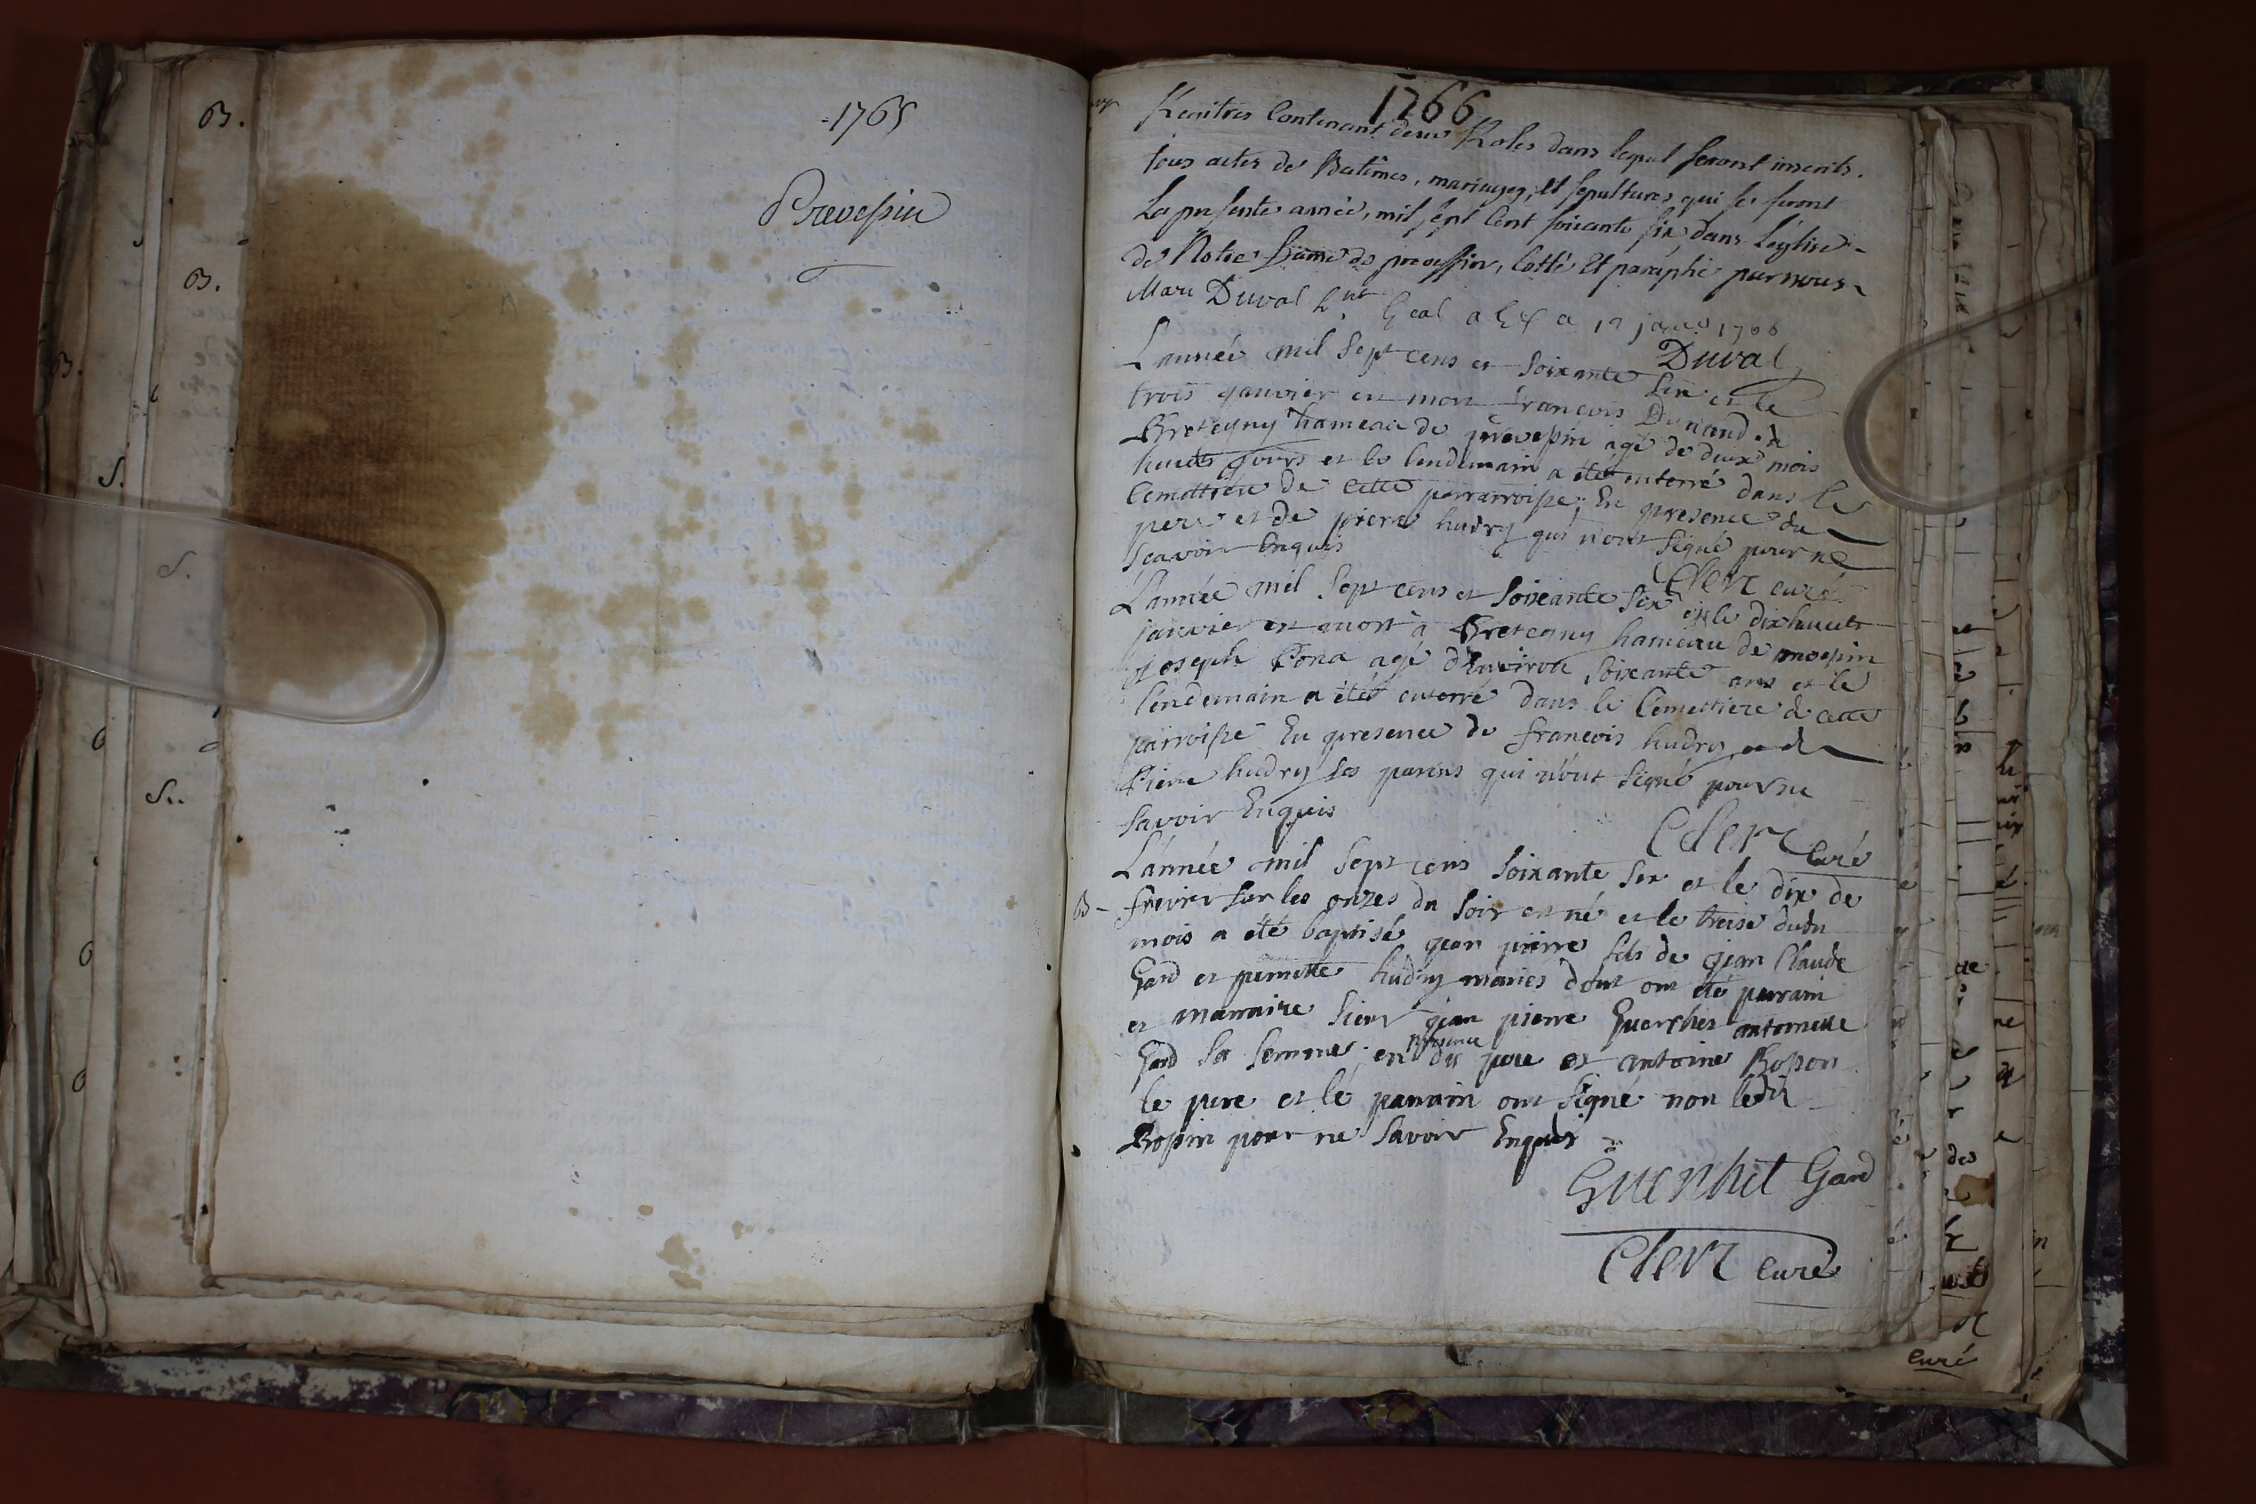 1765
Prevessin
1766
Renitres Contenant deux Roles dans lequel seront inscrits
tous actes de Batêmes, mariages, et sepultures qui se feront
La presente année, mil sept Cent soixante six, dans L'églize
de Notre Dame de prevessin, Cotté Et paraphé par nous
Marc Duval Lnt Gral a Gex a 12 janv 1766
Duval
L'année mil sept cens et soixante six et le
trois janvier est mort francois Dunand à
Bretegny hameau de prevessin agé de deux mois
huits jours et le lendemain a été enterré dans le
Cemettiere de cette parrarroisse, En presence du
pere et de piere hudry qui n'ont signé pour ne
scavoir Enquis
Clerc curé
L'année mil sept cens et soixante six et le dix huits
janvier est mort à Bretegny hameau de prevessin
joseph Fona agé d'Environ soixante ans et le
lendemain a été enterré dans le Cemettiere de cette
parroisse En presence de francois hudry et de
Pierre hudry ses parens qui n'ont signé pour ne
savoir Enquis
Clerc curé
L'année mil sept cens soixante six et le dix de
B - fevrier sur les onzes du soir est né et le treise dudit
mois a été baptisé jean pierre fils de jean Claude
Gard et pernette hudry mariés dont ont été parrain
et marraine sieur jean pierre Guerchet antoinette
Gard sa femme, en presence du pere et antoine Bosson
le pere et le parrain ont signé non ledit
Bosson pour ne savoir Enquis
Guerchet Gard
Clerc curé
B.
B.
B.
S.
S.
S.
des
curé